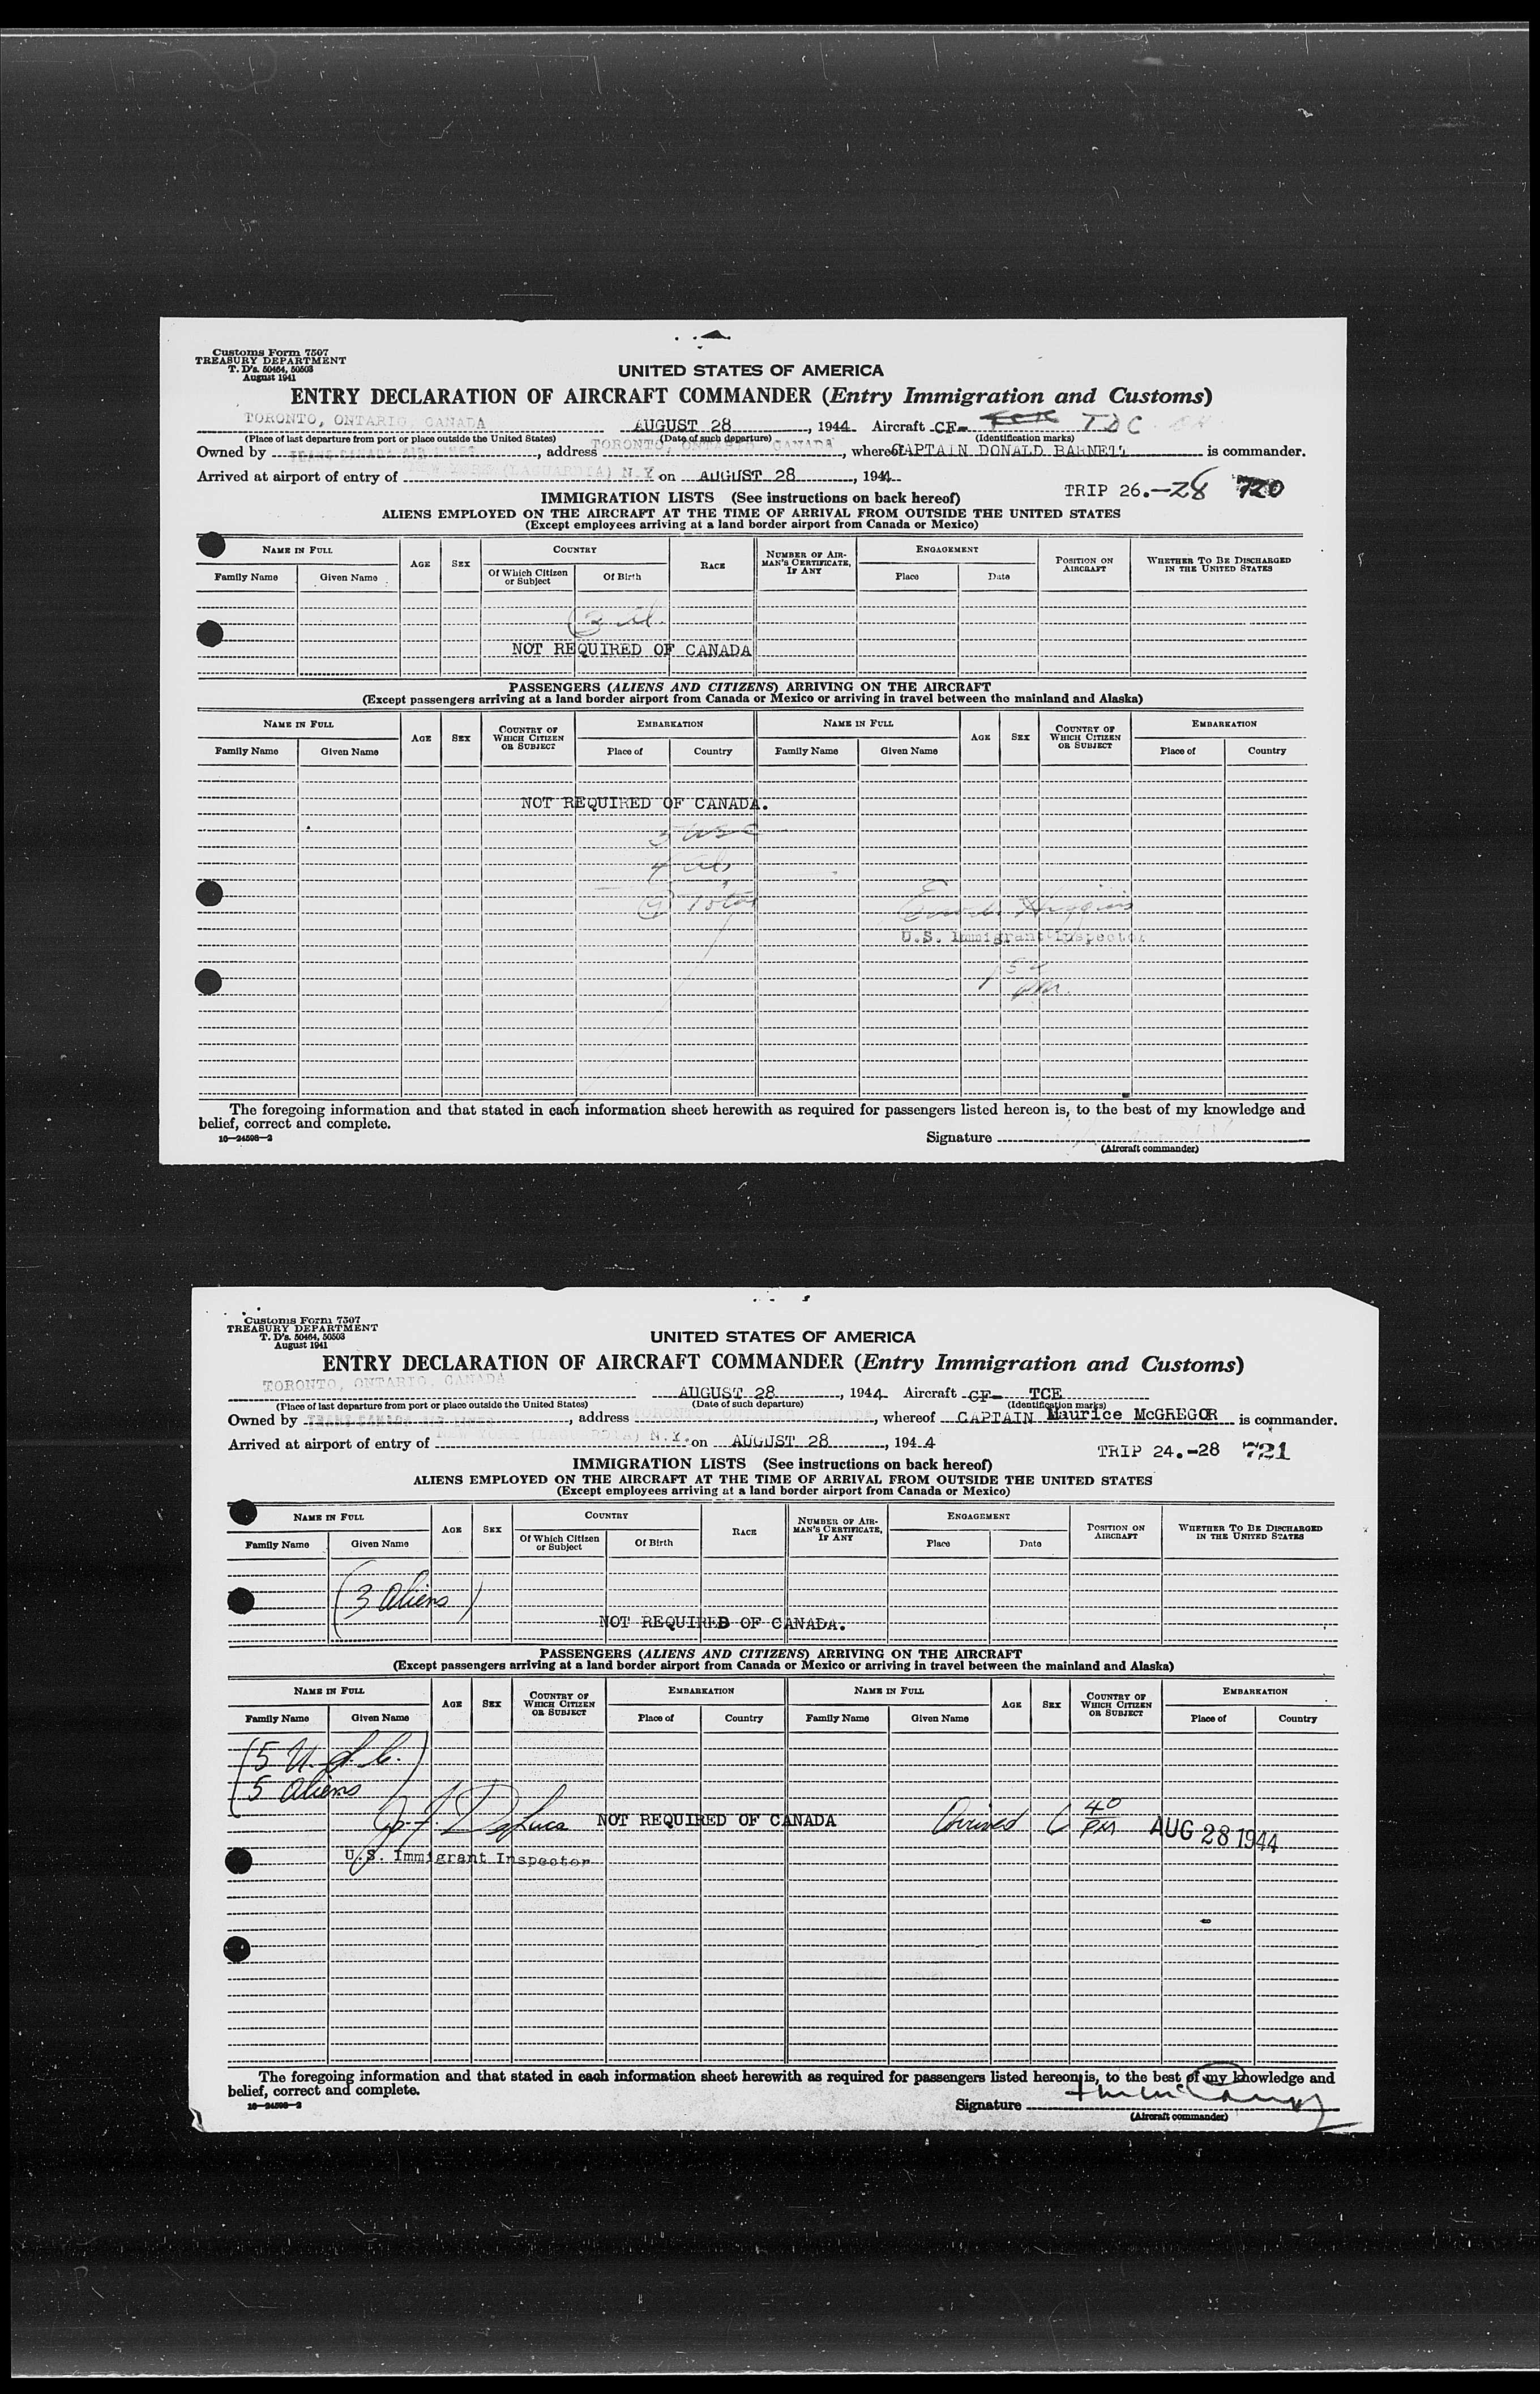 Customs Form 7507
TREASURY DEPARTMENT
T. D's. 50464, 50503
August 1941
UNITED STATES OF AMERICA
ENTRY DECLARATION OF AIRCRAFT COMMANDER (Entry Immigration and Customs)
TORONTO, ONTARIO, CANADA AUGUST 28, 1944 Aircraft CF- TDC
(Place of last departure from port or place outside the United States) (Date of such departure) (Identification marks)
Owned by TRANS-CANADA AIR LINES, address TORONTO, ONTARIO, CANADA, whereof CAPTAIN DONALD BARNETT is commander.
Arrived at airport of entry of (LAGUARDIA) N.Y. on AUGUST 28, 1944
TRIP 26.-28 720
IMMIGRATION LISTS (See instructions on back hereof)
ALIENS EMPLOYED ON THE AIRCRAFT AT THE TIME OF ARRIVAL FROM OUTSIDE THE UNITED STATES
(Except employees arriving at a land border airport from Canada or Mexico)
NAME IN FULL AGE SEX COUNTRY RACE NUMBER OF AIRMAN'S CERTIFICATE, IF ANY ENGAGEMENT POSITION ON AIRCRAFT WHETHER TO BE DISCHARGED IN THE UNITED STATES
Family Name Given Name Of Which Citizen or Subject Of Birth Place Date
3 al.
NOT REQUIRED OF CANADA
PASSENGERS (ALIENS AND CITIZENS) ARRIVING ON THE AIRCRAFT
(Except passengers arriving at a land border airport from Canada or Mexico or arriving in travel between the mainland and Alaska)
NAME IN FULL AGE SEX COUNTRY OF WHICH CITIZEN OR SUBJECT EMBARKATION NAME IN FULL AGE SEX COUNTRY OF WHICH CITIZEN OR SUBJECT EMBARKATION
Family Name Given Name Place of Country Family Name Given Name Place of Country
NOT REQUIRED OF CANADA.
5 USC
4 als
9 Total
Higgins
U.S. Immigrant Inspector
PM.
The foregoing information and that stated in each information sheet herewith as required for passengers listed hereon is, to the best of my knowledge and
belief, correct and complete.
16—24598-2
Signature
(Aircraft commander)
Customs Form 7507
TREASURY DEPARTMENT
T. D's. 50464, 50503
August 1941
UNITED STATES OF AMERICA
ENTRY DECLARATION OF AIRCRAFT COMMANDER (Entry Immigration and Customs)
TORONTO, ONTARIO, CANADA AUGUST 28, 1944 Aircraft CF- TCE
(Place of last departure from port or place outside the United States) (Date of such departure) (Identification marks)
Owned by TRANS-CANADA AIR LINES, address TORONTO, ONTARIO, CANADA, whereof CAPTAIN Maurice McGREGOR is commander.
Arrived at airport of entry of (LAGUARDIA) N.Y. on AUGUST 28, 1944
TRIP 24.-28 721
IMMIGRATION LISTS (See instructions on back hereof)
ALIENS EMPLOYED ON THE AIRCRAFT AT THE TIME OF ARRIVAL FROM OUTSIDE THE UNITED STATES
(Except employees arriving at a land border airport from Canada or Mexico)
NAME IN FULL AGE SEX COUNTRY RACE NUMBER OF AIRMAN'S CERTIFICATE, IF ANY ENGAGEMENT POSITION ON AIRCRAFT WHETHER TO BE DISCHARGED IN THE UNITED STATES
Family Name Given Name Of Which Citizen or Subject Of Birth Place Date
(3 Aliens)
NOT REQUIRED OF CANADA.
PASSENGERS (ALIENS AND CITIZENS) ARRIVING ON THE AIRCRAFT
(Except passengers arriving at a land border airport from Canada or Mexico or arriving in travel between the mainland and Alaska)
NAME IN FULL AGE SEX COUNTRY OF WHICH CITIZEN OR SUBJECT EMBARKATION NAME IN FULL AGE SEX COUNTRY OF WHICH CITIZEN OR SUBJECT EMBARKATION
Family Name Given Name Place of Country Family Name Given Name Place of Country
(5 U.S.C.)
5 Aliens
DeLuca NOT REQUIRED OF CANADA Arrived 6 40 PM AUG 28 1944
U.S. Immigrant Inspector
The foregoing information and that stated in each information sheet herewith as required for passengers listed hereon is, to the best of my knowledge and
belief, correct and complete.
16—24598-2
Signature
(Aircraft commander)